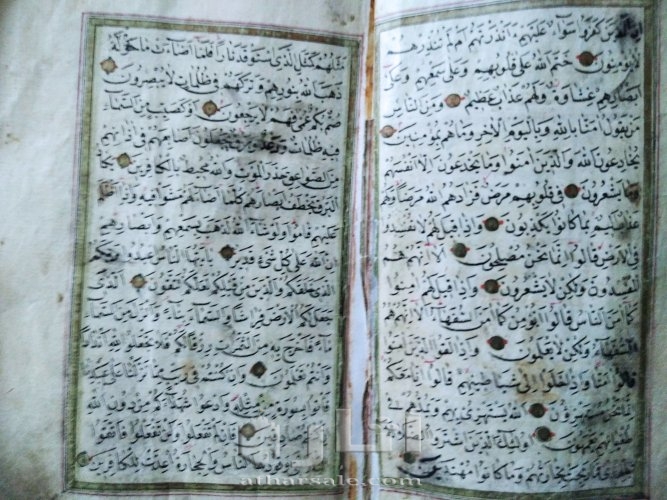 ان الذين كفروا سواء عليهم ءانذرتهم ام لم تنذرهم
لا يؤمنون ختم الله على قلوبهم وعلى سمعهم وعلى
ابصارهم غشاوة ولهم عذاب عظيم ومن الناس
من يقول امنا بالله وباليوم الاخر وما هم بمؤمنين
يخادعون الله والذين امنوا وما يخدعون الا انفسهم
وما يشعرون في قلوبهم مرض فزادهم الله مرضا ولهم
عذاب اليم بما كانوا يكذبون واذا قيل لهم لا تفسدوا
في الارض قالوا انما نحن مصلحون الا انهم هم
المفسدون ولكن لا يشعرون واذا قيل لهم امنوا
كما امن الناس قالوا انؤمن كما امن السفهاء الا انهم هم
السفهاء ولكن لا يعلمون واذا لقوا الذين امنوا
قالوا امنا واذا خلوا الى شياطينهم قالوا انا معكم
انما نحن مستهزؤن الله يستهزئ بهم ويمدهم في
طغيانهم يعمهون اولئك الذين اشتروا الضلالة
بالهدى فما ربحت تجارتهم وما كانوا مهتدين
مثلهم كمثل الذي استوقد نارا فلما اضاءت ما حوله
ذهب الله بنورهم وتركهم في ظلمات لا يبصرون
صم بكم عمي فهم لا يرجعون او كصيب من السماء
فيه ظلمات ورعد وبرق يجعلون اصابعهم في اذانهم
من الصواعق حذر الموت والله محيط بالكافرين يكاد
البرق يخطف ابصارهم كلما اضاء لهم مشوا فيه واذا اظلم
عليهم قاموا ولو شاء الله لذهب بسمعهم وابصارهم
ان الله على كل شيء قدير يا ايها الناس اعبدوا ربكم
الذي خلقكم والذين من قبلكم لعلكم تتقون الذي
جعل لكم الارض فراشا والسماء بناء وانزل من السماء
ماء فاخرج به من الثمرات رزقا لكم فلا تجعلوا لله اندادا
وانتم تعلمون وان كنتم في ريب مما نزلنا على عبدنا
فاتوا بسورة من مثله وادعوا شهداءكم من دون الله
ان كنتم صادقين فان لم تفعلوا ولن تفعلوا فاتقوا
النار التي وقودها الناس والحجارة اعدت للكافرين
atharsale.com